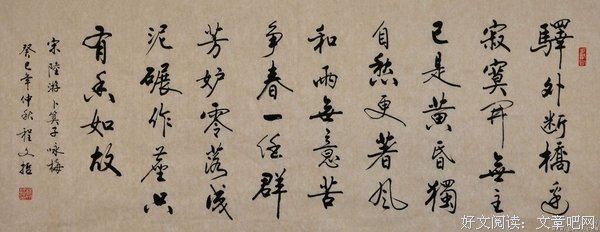 驛外断橋邊
寂寞開無主
已是黄昏獨
自愁更著风
和雨無意苦
争春一任群
芳妒零落成
泥碾作塵只
有香如故
宋陸游卜算子咏梅
癸巳年仲秋程文
好文阅读：文章吧网